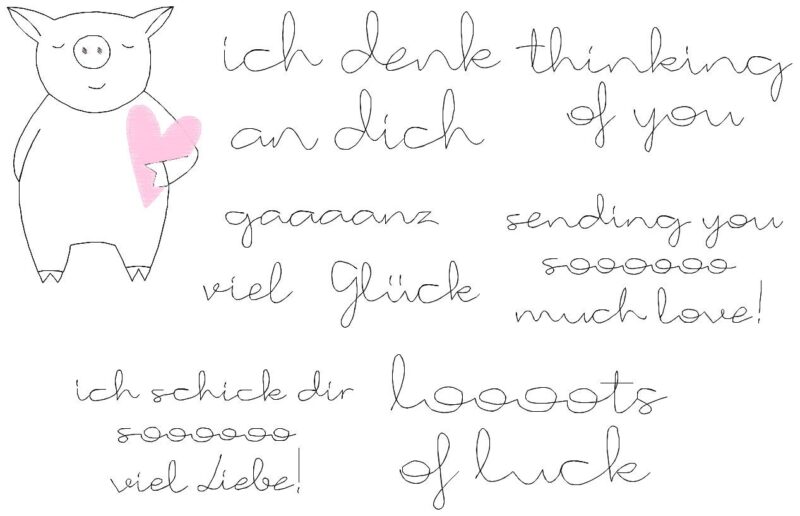 ich denk
an dich
thinking
of you
gaaaanz
viel Glück
sending you
sooooooo
much love!
ich schick dir
sooooooo
viel Liebe!
looooots
of luck